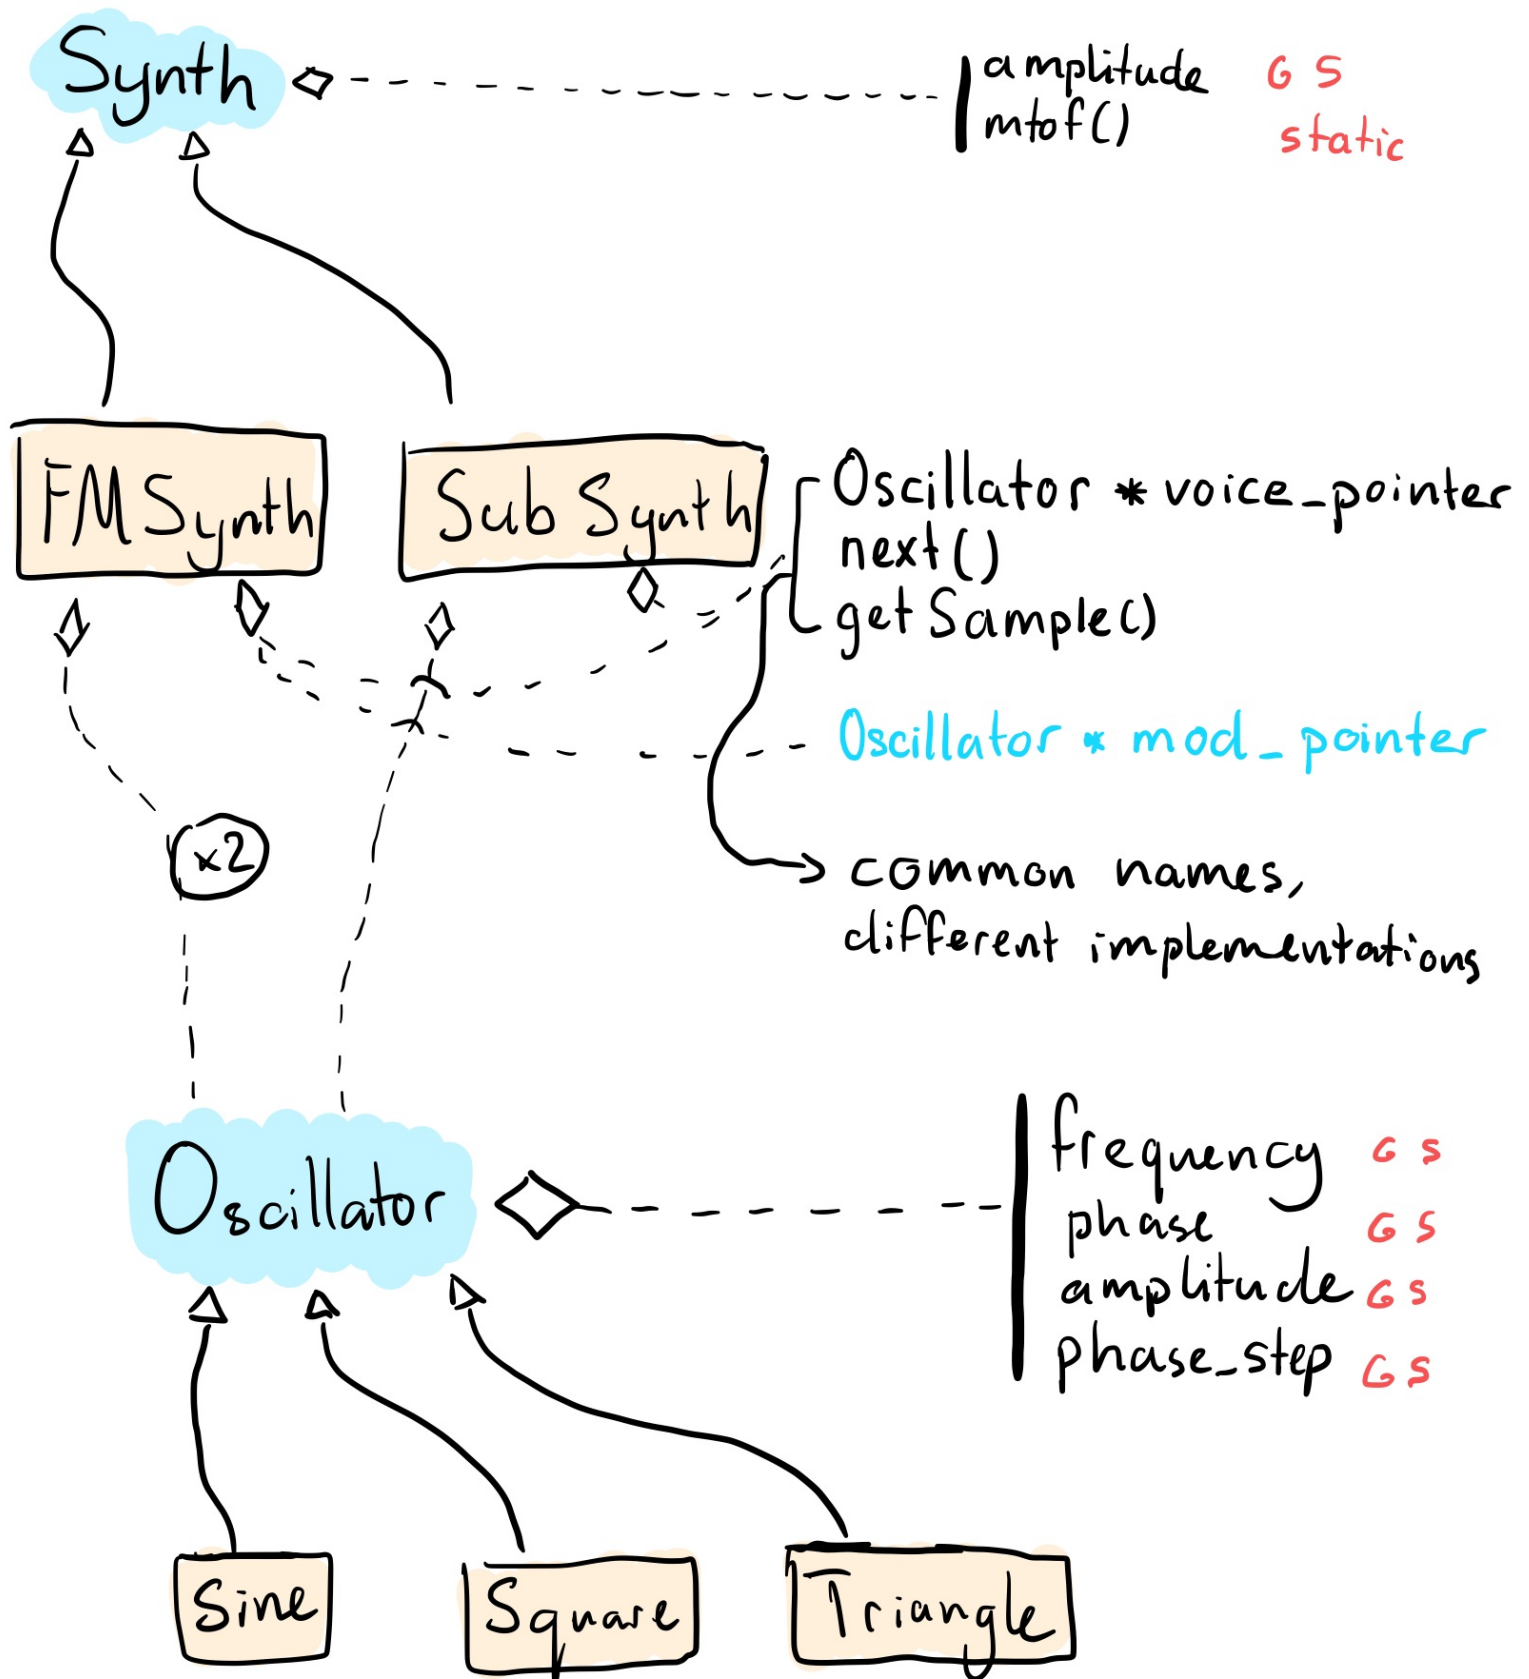 Synth
amplitude G S
mtof() static
FMSynth
SubSynth
Oscillator * voice_pointer
next()
getSample()
Oscillator * mod_pointer
x2
common names,
different implementations
Oscillator
frequency G S
phase G S
amplitude G S
phase_step G S
Sine
Square
Triangle